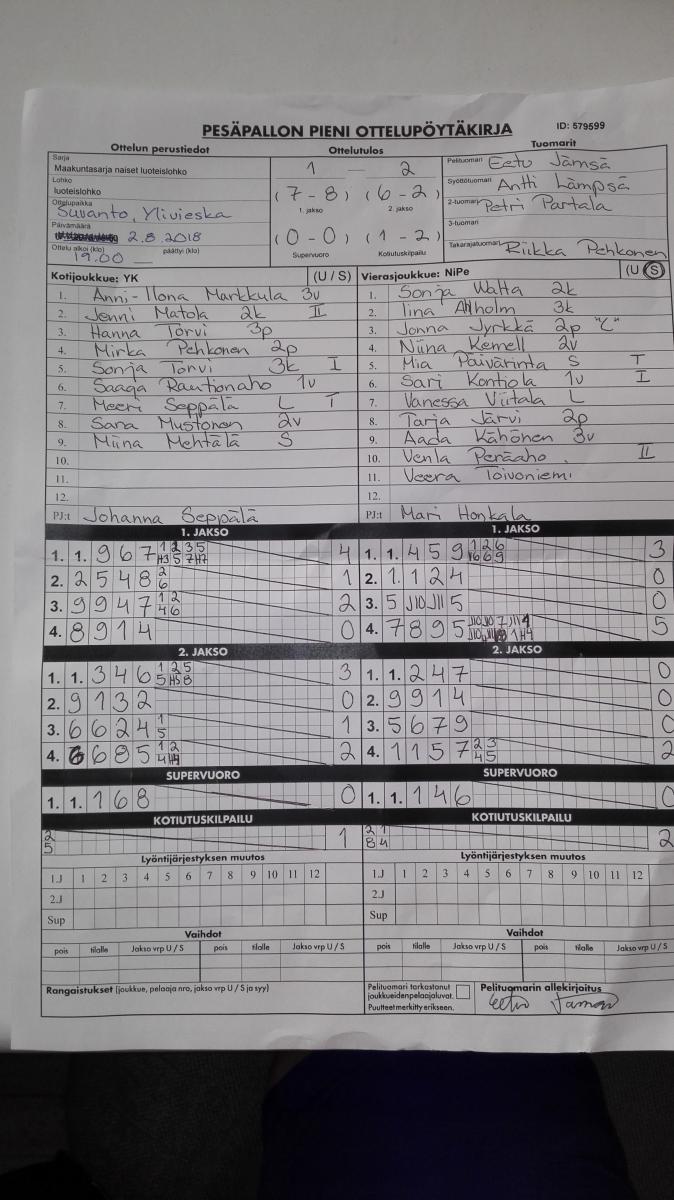 PESÄPALLON PIENI OTTELUPÖYTÄKIRJA ID: 579599
Ottelun perustiedot Ottelutulos Tuomarit
Sarja
Maakuntasarja naiset luoteislohko
Lohko
luoteislohko
Ottelupaikka
Suvanto, Ylivieska
Päivämäärä
2.8.2018
Ottelu alkoi (klo) päättyi (klo)
19.00
1 — 2
(7 - 8) (6 - 2)
1. jakso 2. jakso
(0 - 0) (1 - 2)
Supervuoro Kotiutuskilpailu
Pelituomari Eetu Jämsä
Syöttötuomari Antti Lämpsä
2-tuomari Petri Partala
3-tuomari
Takarajatuomari Riikka Pehkonen
Kotijoukkue: YK (U / S)
1. Anni-Ilona Markkula 3v
2. Jenni Matola 2k II
3. Hanna Torvi 3p
4. Mirka Pehkonen 2p
5. Sonja Torvi 3k I
6. Saaga Rautionaho 1v
7. Meeri Seppälä L T
8. Sana Mustonen 2v
9. Miina Mehtälä S
10.
11.
12.
PJ:t Johanna Seppälä
Vierasjoukkue: NiPe (U / S)
1. Sonja Watta 2k
2. Tiina Ahlholm 3k
3. Jonna Jyrkkä 2p "C"
4. Niina Kemell 2v
5. Mia Päivärinta S T
6. Sari Kontiola 1v I
7. Vanessa Viitala L
8. Tarja Järvi 2p
9. Aada Kähönen 3v
10. Venla Peräaho II
11. Veera Toivoniemi
12.
PJ:t Mari Honkala
1. JAKSO
1. 1. 9 6 7 4
2. 2 5 4 8 2 6 1
3. 9 9 4 7 1 2 4 6 2
4. 8 9 1 4 0
2. JAKSO
1. 1. 3 4 6 1 2 5 5 H5 8 3
2. 9 1 3 2 0
3. 6 6 2 4 1 5 1
4. 6 6 8 5 1 2 2
SUPERVUORO
1. 1. 1 6 8 0
KOTIUTUSKILPAILU
2 5 1
1. JAKSO
1. 1. 4 5 9 1 2 6 3
2. 1. 1 2 4 0
3. 5 J10 J11 5 0
4. 7 8 9 5 5
2. JAKSO
1. 1. 2 4 7 0
2. 9 9 1 4 0
3. 5 6 7 9 0
4. 1 1 5 7 2 3 4 5 2
SUPERVUORO
1. 1. 1 4 6 0
KOTIUTUSKILPAILU
2 1 8 4 2
Lyöntijärjestyksen muutos
1.J 1 2 3 4 5 6 7 8 9 10 11 12
2.J
Sup
Vaihdot
pois tilalle Jakso vrp U / S pois tilalle Jakso vrp U / S
Lyöntijärjestyksen muutos
1.J 1 2 3 4 5 6 7 8 9 10 11 12
2.J
Sup
Vaihdot
pois tilalle Jakso vrp U / S pois tilalle Jakso vrp U / S
Rangaistukset (joukkue, pelaaja nro, jakso vrp U / S ja syy)
Pelituomari tarkastanut
joukkueidenpelaajaluvat.
Puutteet merkitty erikseen.
Pelituomarin allekirjoitus